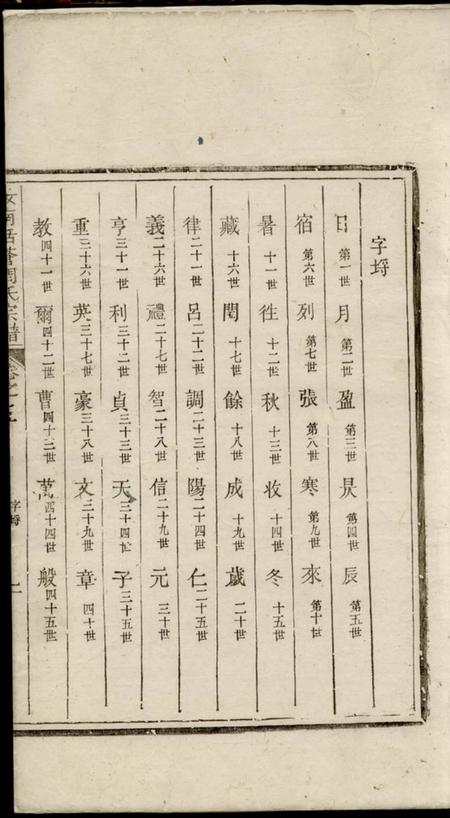 字㝷
日第一世 月第二世 盈第三世 昃第四世 辰第五世
宿第六世 列第七世 張第八世 寒第九世 來第十世
暑十一世 徃十二世 秋十三世 收十四世 冬十五世
藏十六世 閏十七世 餘十八世 成十九世 歲二十世
律二十一世 呂二十二世 調二十三世 陽二十四世 仁二十五世
義二十六世 禮二十七世 智二十八世 信二十九世 元三十世
亨三十一世 利三十二世 貞三十三世 天三十四世 子三十五世
重三十六世 英三十七世 豪三十八世 文三十九世 章四十世
教四十一世 爾四十二世 曹四十三世 萬四十四世 般四十五世
周氏宗譜 卷之 字